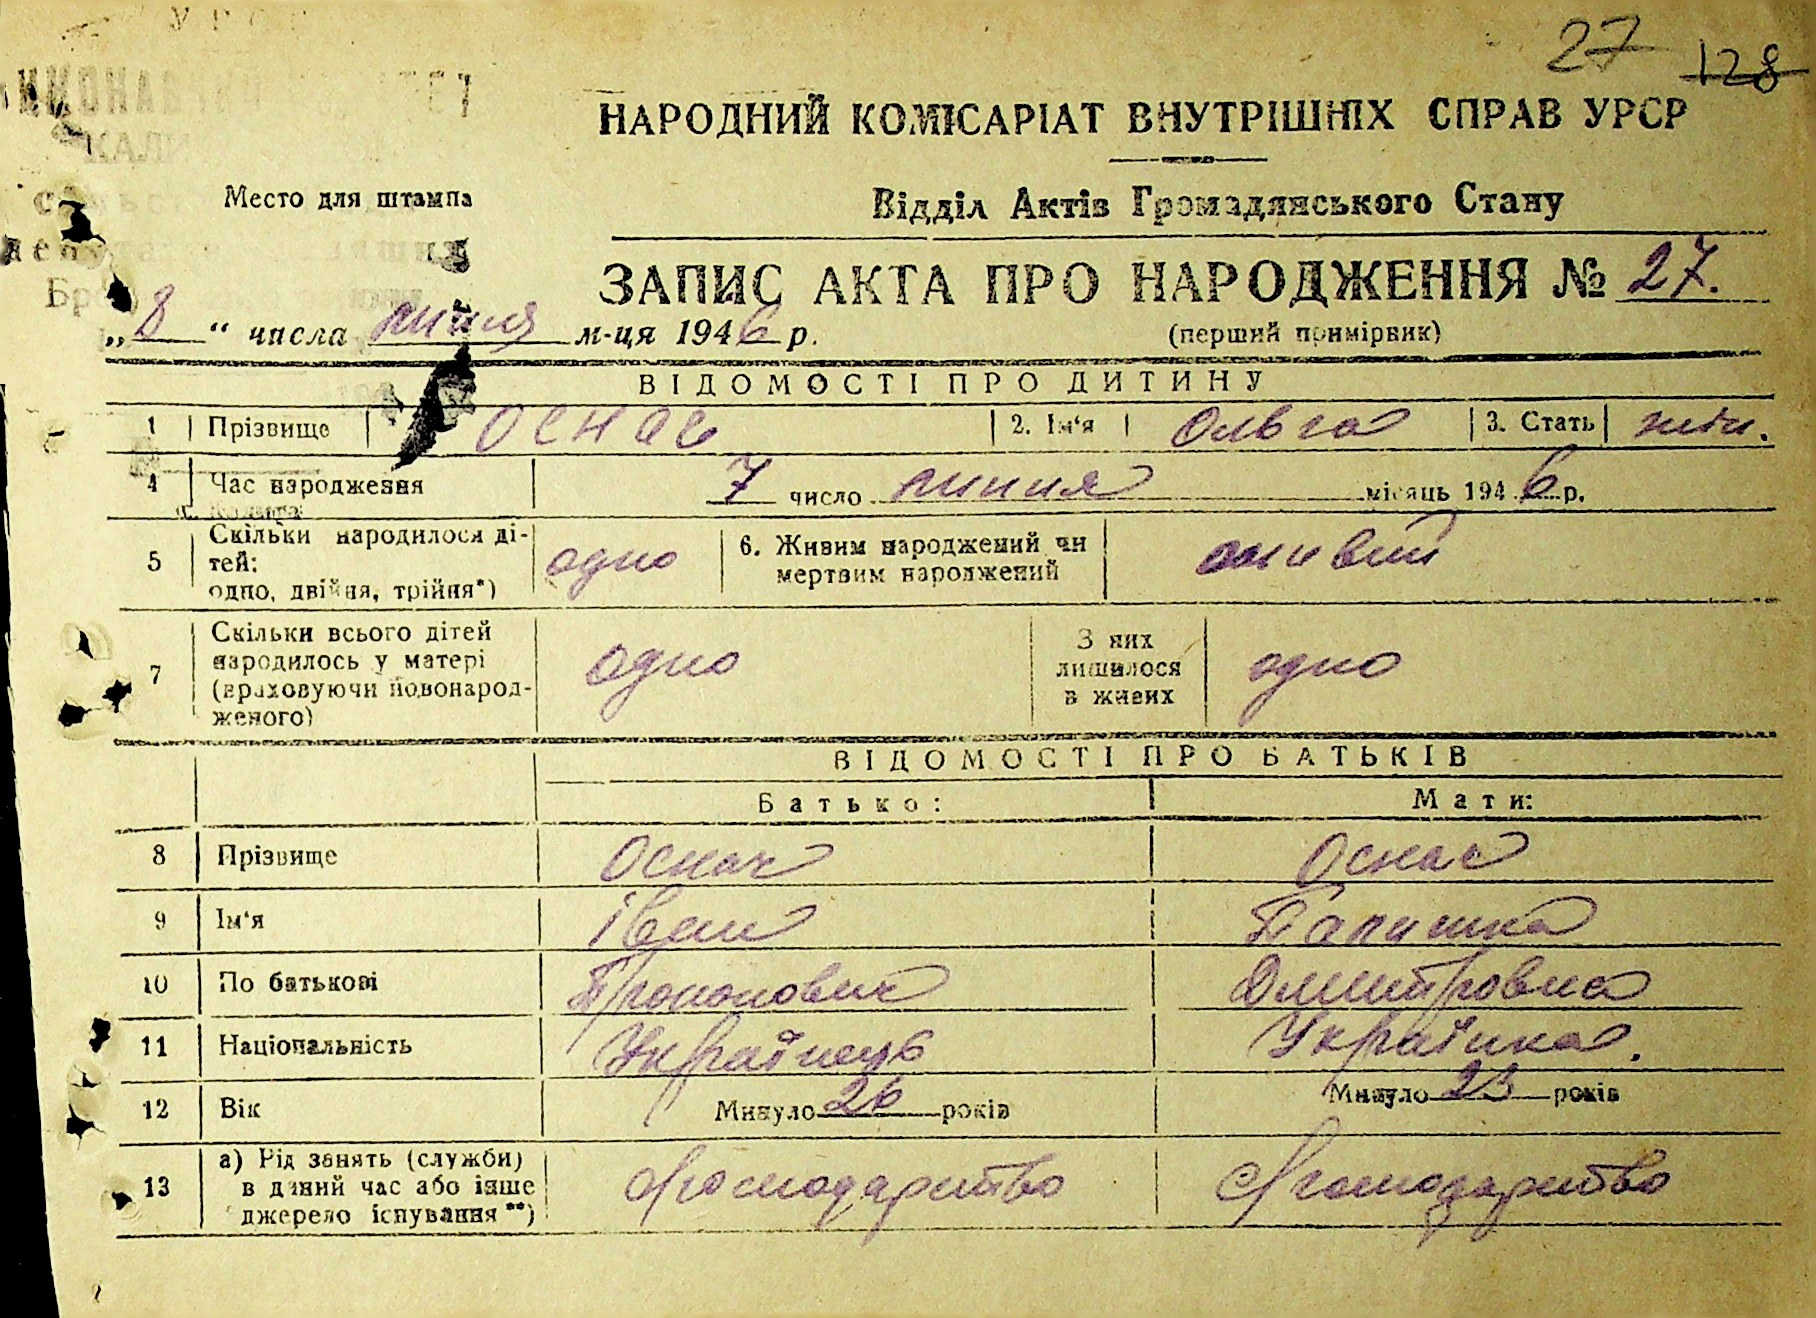 27 128
НАРОДНИЙ КОМІСАРІАТ ВНУТРІШНІХ СПРАВ УРСР
Место для штампа
Відділ Актів Громадянського Стану
ЗАПИС АКТА ПРО НАРОДЖЕННЯ № 27.
„8“ числа липня м-ця 1946 р.
(перший примірвик)
ВІДОМОСТІ ПРО ДИТИНУ
1 Прізвище Оснач 2. Ім'я Ольга 3. Стать жін.
4 Час народження 7 число липня місяць 1946 р.
5 Скільки народилося дітей: одно, двійня, трійня*) одно 6. Живим народжений чи мертвим народжений живий
7 Скільки всього дітей народилось у матері (враховуючи новонародженого) одно З них лишилося в живих одно
ВІДОМОСТІ ПРО БАТЬКІВ
Батько: Мати:
8 Прізвище Оснач Оснач
9 Ім'я Іван
10 По батькові Прокопович Дмитровна
11 Національність Українець Українка.
12 Вік Минуло 26 років Минуло 23 років
13 а) Рід занять (служби) в даний час або інше джерело існування**) Господарство Господарство